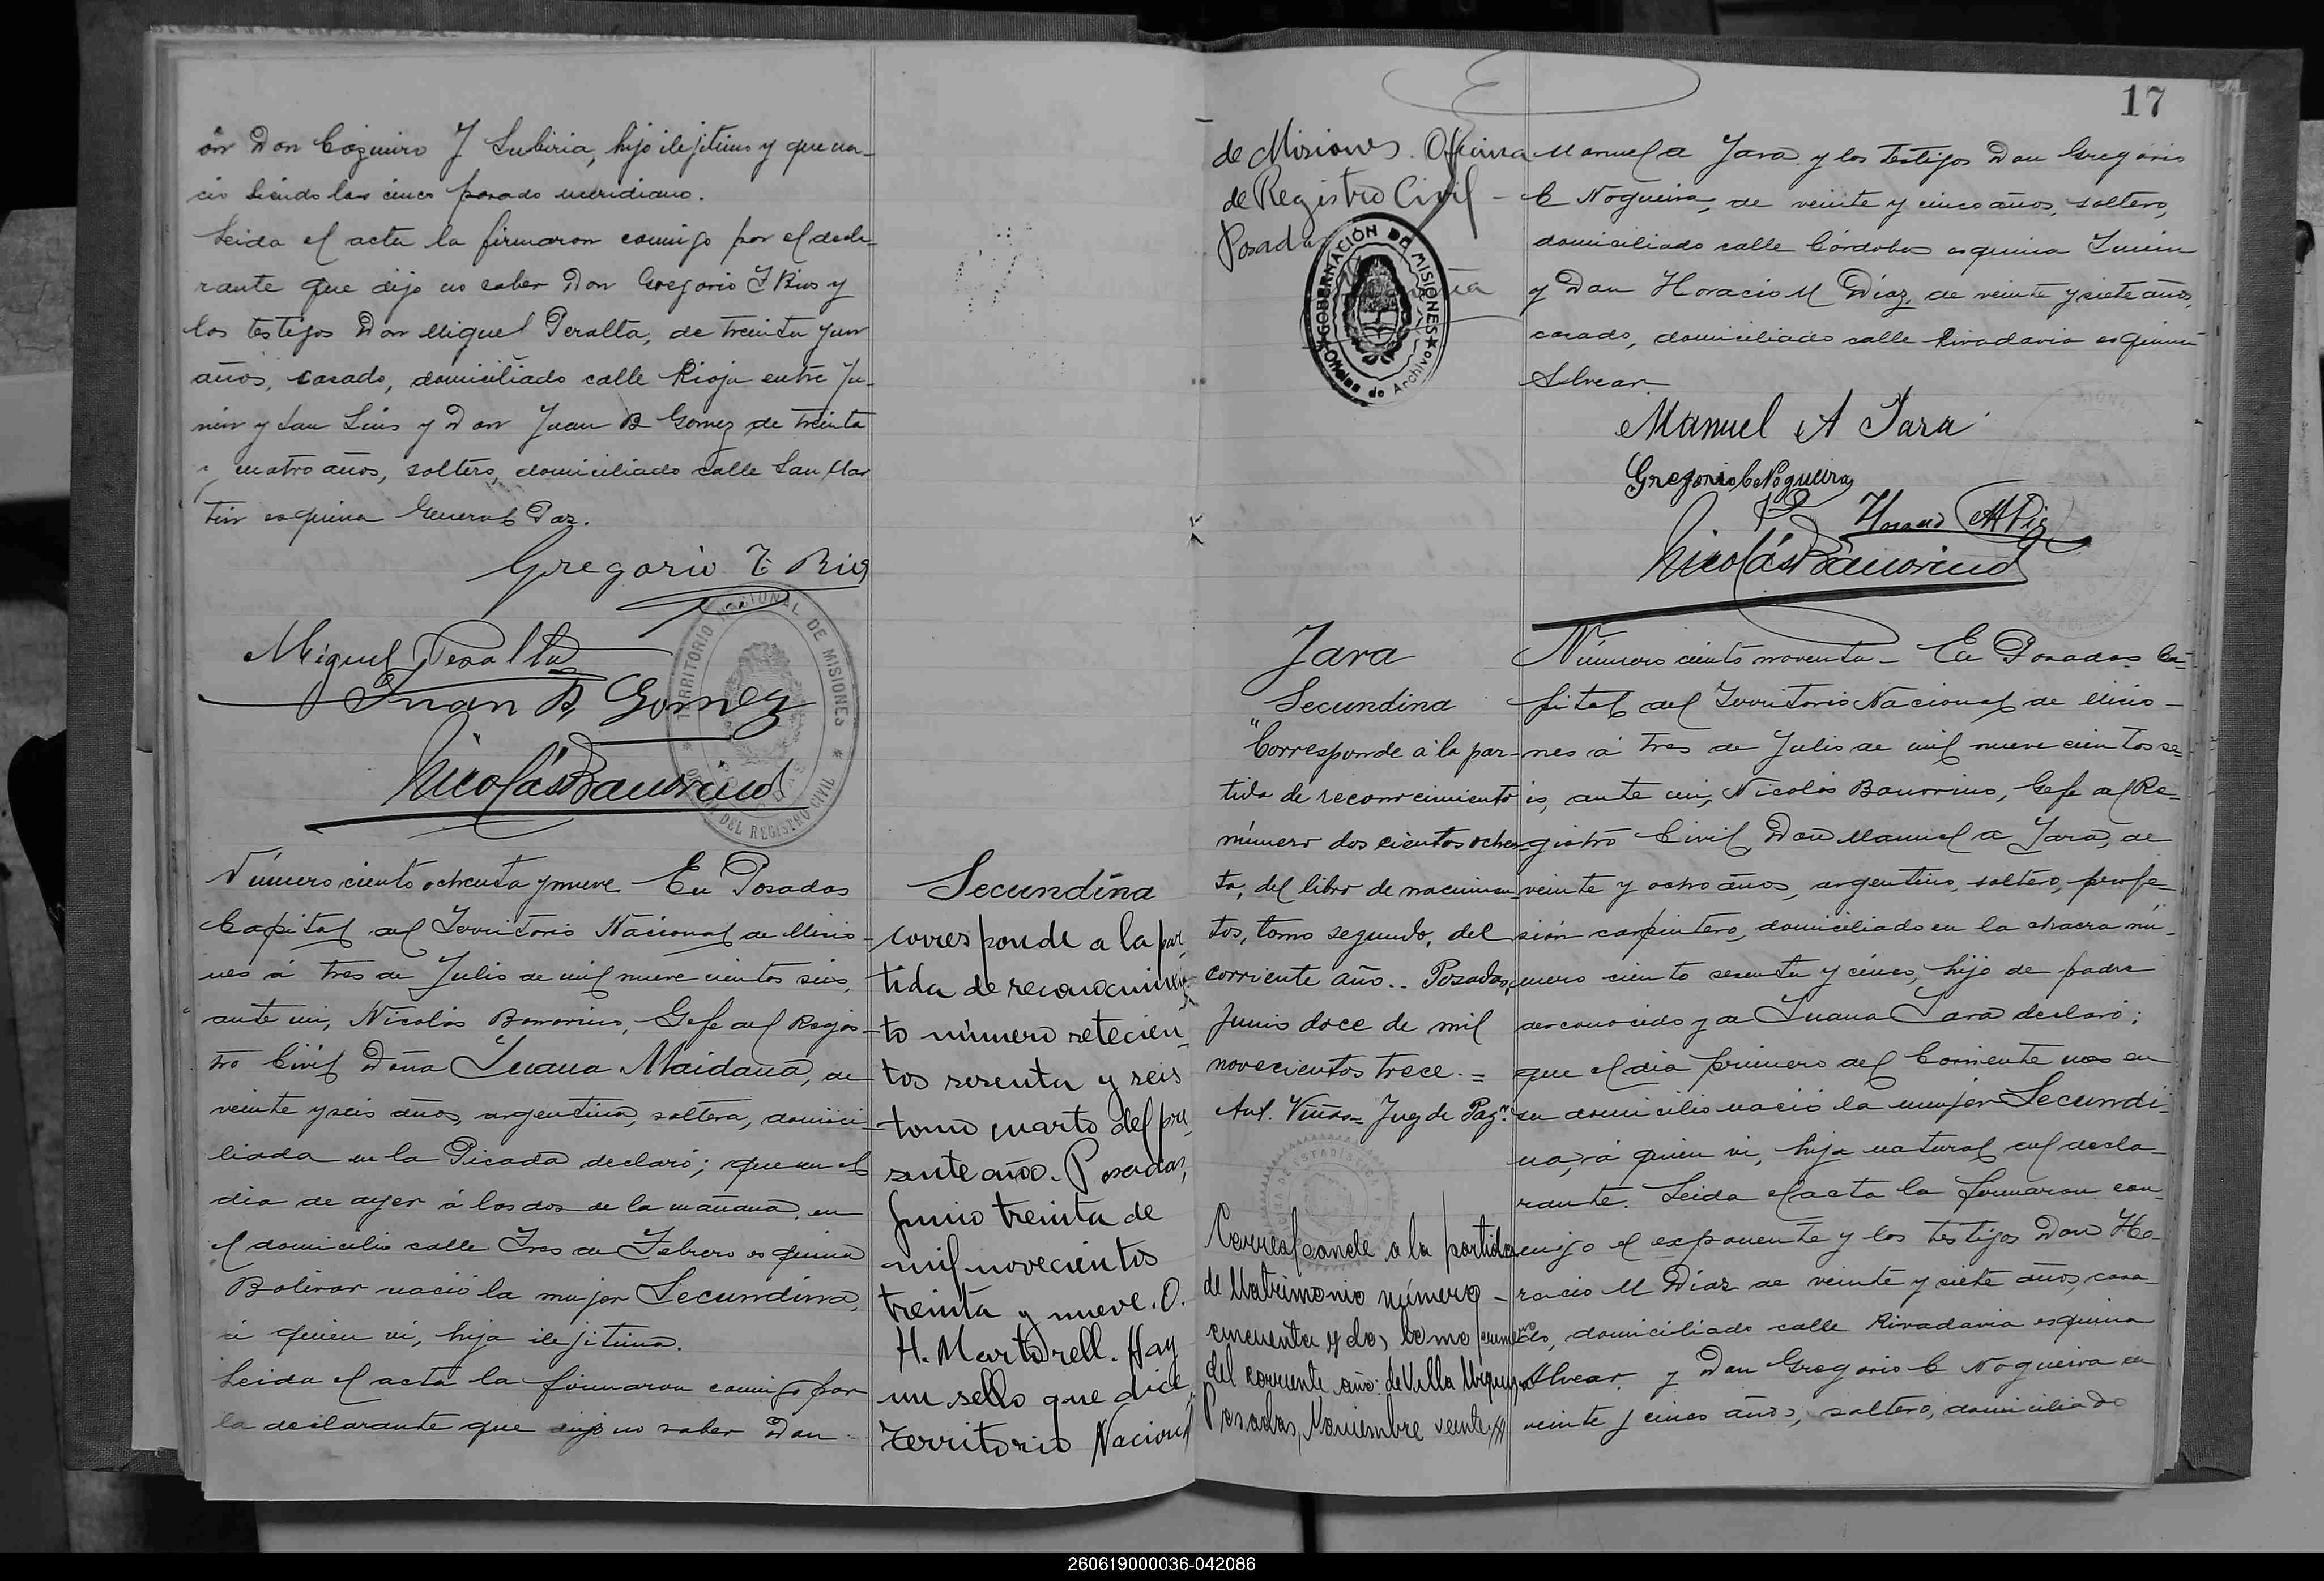 ón Don Cazimiro J Subiria, hijo ilejitimo y que na-
cio siendo las cinco pasado meridiano.
Leida el acta la firmaron conmigo por el decla-
rante que dijo no saber Don Gregorio T Rios y
los testigos Don Miguel Peralta, de treinta y un
años, casado, domiciliado calle Rioja entre Ju-
nin y San Luis y Don Juan B Gomez de treinta
y cuatro años, soltero, domiciliado calle San Mar
tin esquina General Paz.
Gregorio T Rios
Miguel Peralta
Juan B. Gomez
Nicolás Bauorino
TERRITORIO NACIONAL DE MISIONES
DEL REGISTRO CIVIL
Número ciento ochenta y nueve En Posadas
Capital del Territorio Nacional de Misio-
nes á tres de Julio de mil nueve cientos seis,
ante mi, Nicolás Bauorino, Gefe del Regis-
tro Civil Doña Juana Maidana, de
veinte y seis años, argentina, soltera, domici-
liada en la Picada declaró; que en el
dia de ayer á las dos de la mañana, en
el domicilio calle Tres de Febrero esquina
Bolivar nació la mujer Secundina,
á quien vi, hija ilejitima.
Leida el acta la firmaron conmigo por
la declarante que dijo no saber Don
Secundina
corresponde a la par
tida de reconocimien
to número setecien
tos sesenta y seis
tomo cuarto del pre
sente año. Posadas,
Junio treinta de
mil novecientos
treinta y nueve. O.
H. Martorell. Hay
un sello que dice
Territorio Nacional
17
de Misiones. Oficina
de Registro Civil -
Posadas
GOBERNACIÓN DE MISIONES
Oficina de Archivo
Manuel A Jara y los testigos Don Gregorio
C Nogueira, de veinte y cinco años, soltero,
domiciliado calle Córdoba esquina Junin
y Don Horacio M Diaz, de veinte y siete años,
casado, domiciliado calle Rivadavia esquina
Alvear
Manuel A Jara
Gregorio C Nogueira
Horacio M Diaz
Nicolás Bauorino
Jara
Secundina
"Corresponde á la par-
tida de reconocimiento
número dos cientos ochen-
ta, del libro de nacimien-
tos, tomo segundo, del
corriente año.. Posadas,
Junio doce de mil
novecientos trece. =
Ant. Viñas = Juez de Paz".
Corresponde a la partida
de Matrimonio número -
cincuenta y dos, tomo primero
del corriente año: de Villa Urquiza
Posadas, Noviembre veinte
Número ciento noventa - En Posadas Ca-
pital del Territorio Nacional de Misio-
nes á tres de Julio de mil nueve cientos se-
is, ante mi, Nicolás Bauorino, Gefe del Re-
gistro Civil, Don Manuel A Jara, de
veinte y ocho años, argentino, soltero, profe-
sión carpintero, domiciliado en la chacra nú-
mero ciento sesenta y cinco, hijo de padre
desconocido y de Juana Jara declaró;
que el dia primero del corriente mes en
su domicilio nació la mujer Secundi-
na, á quien vi, hija natural del decla-
rante. Leida el acta la firmaron con-
migo el exponente y los testigos Don Ho-
racio M Diaz de veinte y siete años, casa-
do, domiciliado calle Rivadavia esquina
Alvear y Don Gregorio C Nogueira de
veinte y cinco años, soltero, domiciliado
260619000036-042086